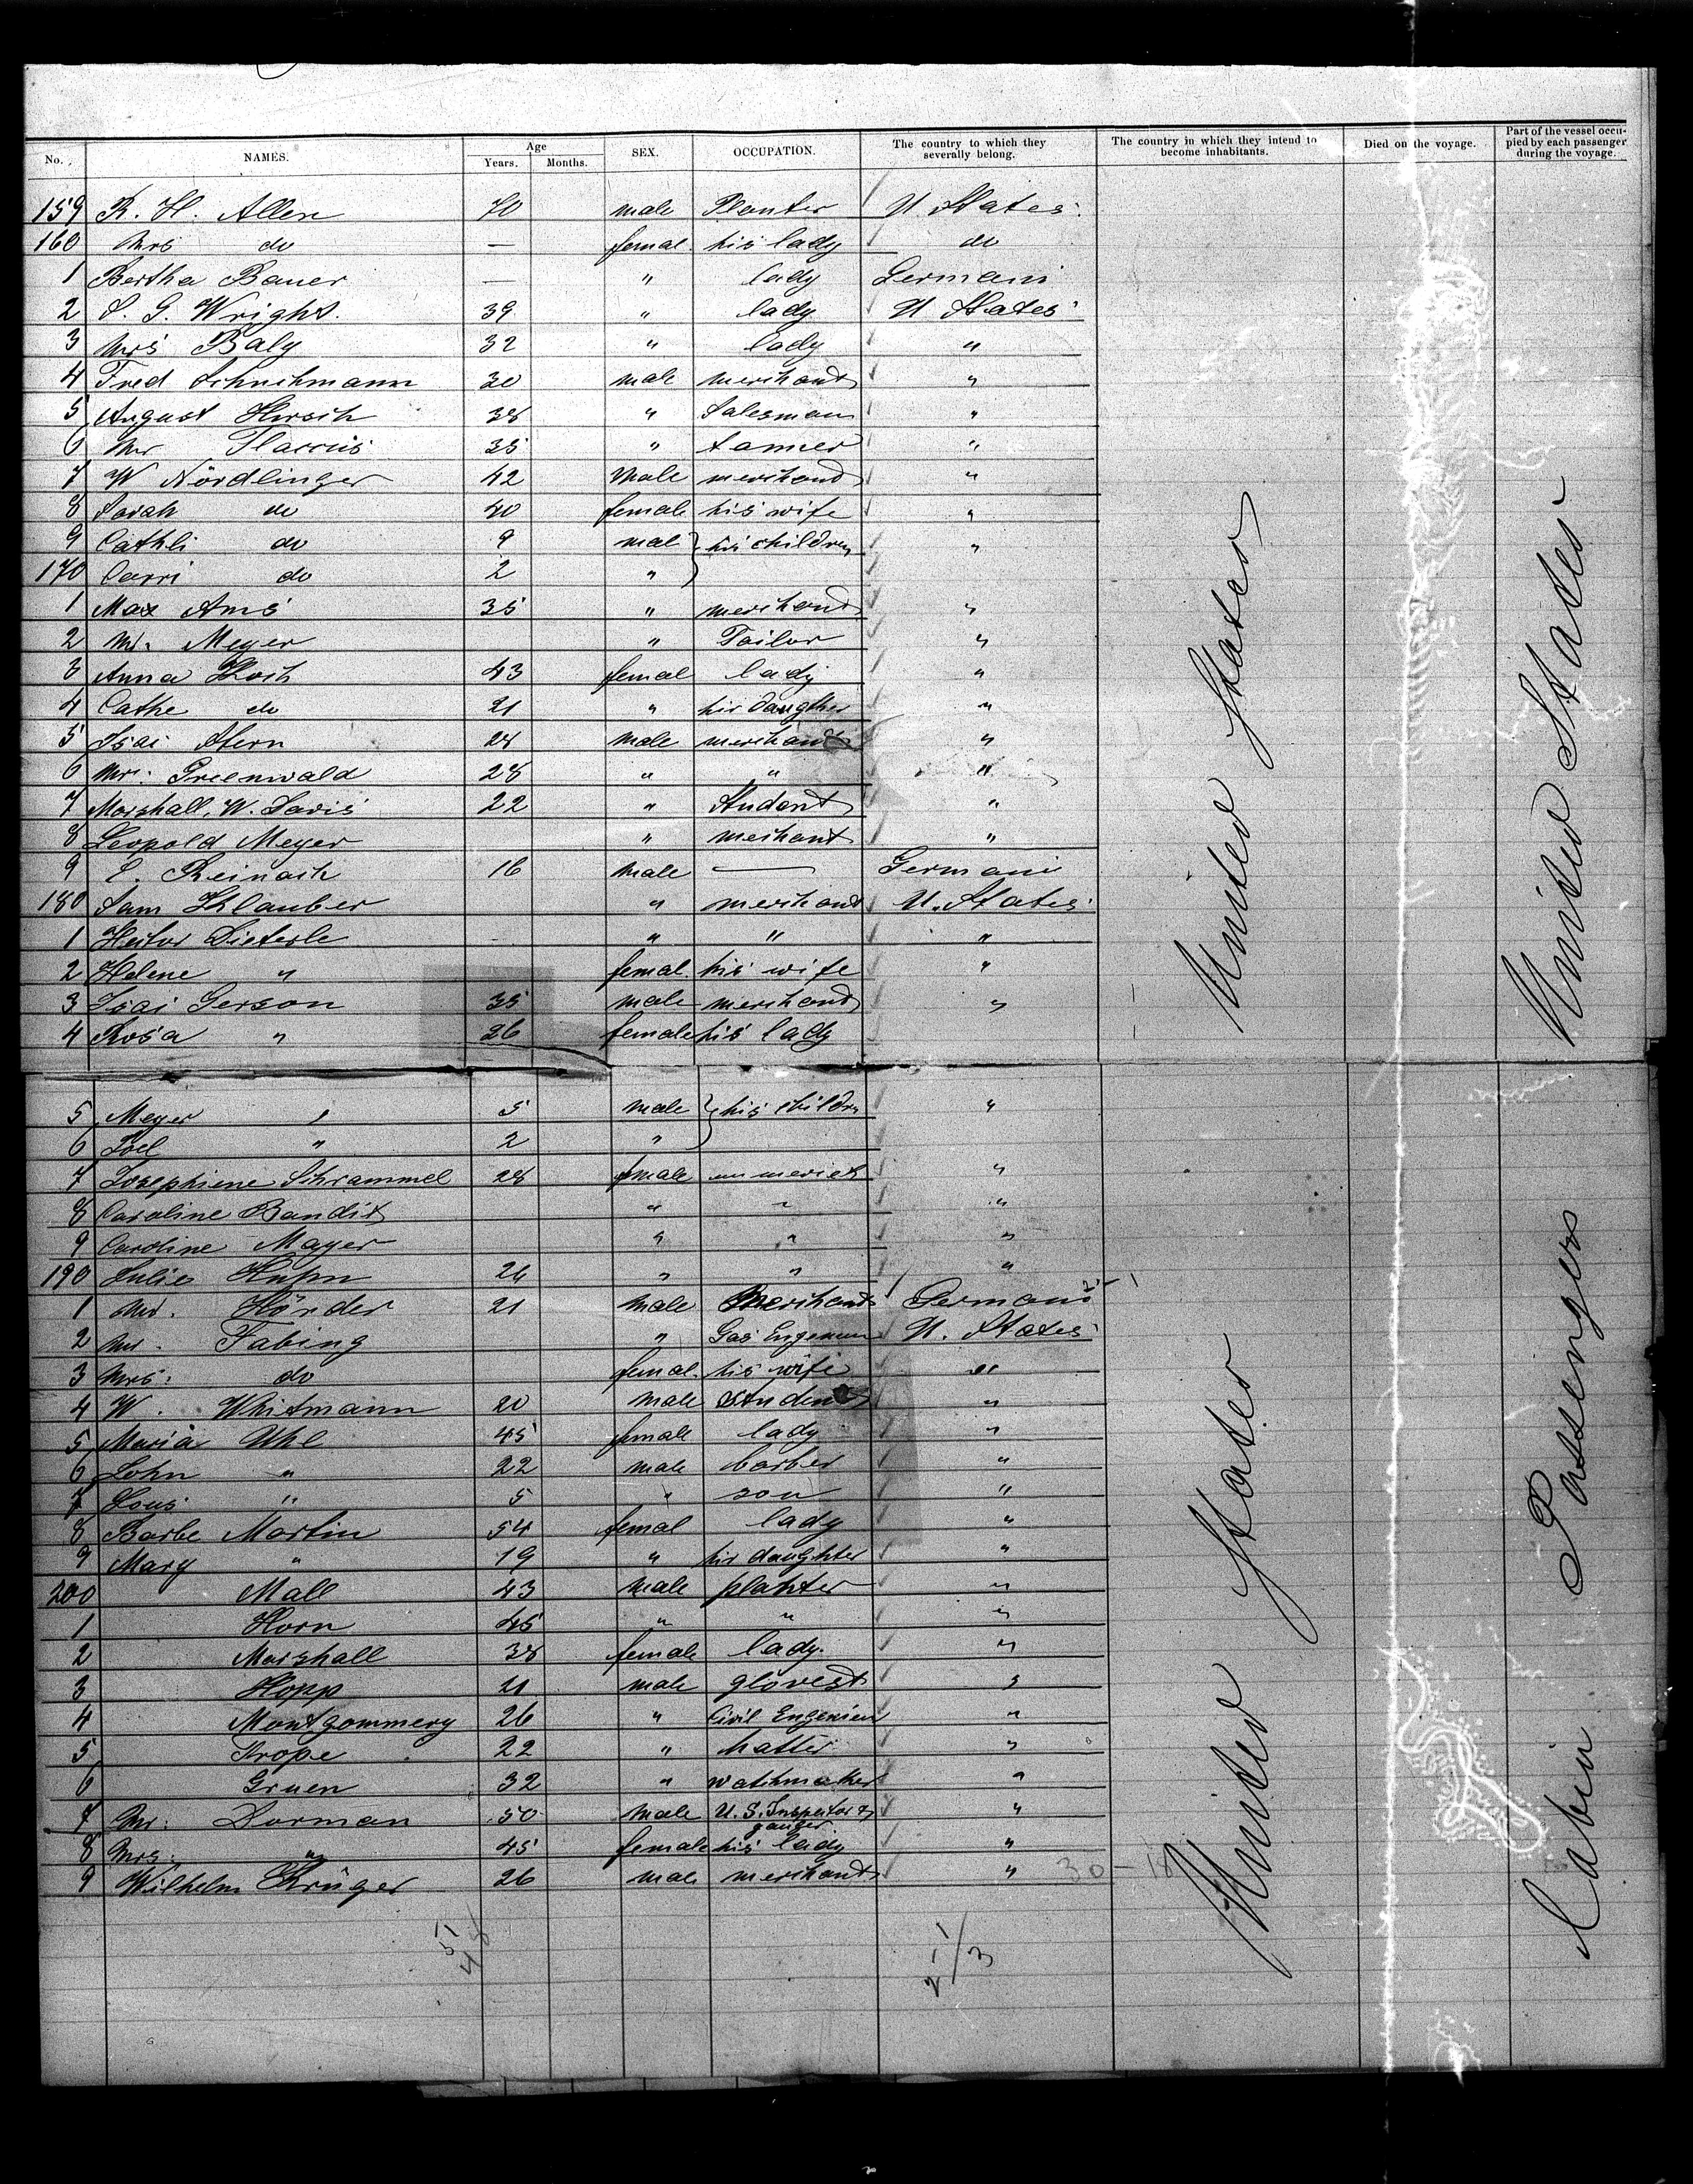 No. NAMES. Age Years. Months. SEX. OCCUPATION. The country to which they severally belong. The country in which they intend to become inhabitants. Died on the voyage. Part of the vessel occupied by each passenger during the voyage.
159 R. H. Allen 70 male Planter U States
160 Mrs do — femal. his lady do
1 Bertha Bauer — " lady Germani
2 S. G. Wright. 39 " lady U States
3 Mrs Baly 32 " lady "
4 Fred Schuchmann 30 male merchant "
5 August Hirsch 38 " Salesman "
6 Mr 35 " tanner "
7 W Nördlinger 42 Male merchant "
8 Sarah do 40 female his wife "
9 Cathli do 9 mal } his children "
170 Carri do 2 "
1 Max Ams 35 " merchant "
2 Mr. Meyer " Tailor "
3 Anna Koch 43 femal lady "
4 Cathe do 21 " hir daugther "
5 Isai Stern 28 Male merchant "
6 Mr. Greenwald 28 " " "
7 Marshall. W. Davis 22 " Student "
8 Leopold Meyer " merchant "
9 Reinach 16 Male — Germani
180 Sam Klauber " merchant U. States
1 Hector Dieterle " " "
2 Helene " femal. his wife "
3 Isai Gerson 35 male merchant "
4 Rosa " 26 female his lady
5 Meyer " 5 Male } his childrn "
6 Joel " 2 "
7 Josephiene Schrammel 28 female "
8 Caroline Bandit " " "
9 Caroline Mayer " " "
190 Julie 24 " " "
1 Mr. Hörder 21 Male Merchant Germani
2 Mr. Fabing " Gas Engeneer U. States
3 Mrs. do femal. his wife "
4 W. Whitmann 20 Male Student "
5 Maria Uhl 45 female lady "
6 John " 22 male barber "
7 Lous " 5 " son "
8 Barbe Martin 54 femal lady "
9 Mary " 19 " hir daughter "
200 Mall 43 male planter "
1 Horn 45 " " "
2 Marshall 38 female lady. "
3 Hopp 21 male glovest "
4 Montgommery 26 " Civil Engenien "
5 Trope 22 " hatter "
6 Gruen 32 " watchmaker "
7 Mr. Dorman 50 Male U. S. Inspector & gauger "
8 Mrs. " 45 female his lady "
9 Wilhelm Krüger 26 male merchant " 30 – 18
United States
United States
United States
Cabin Passengers